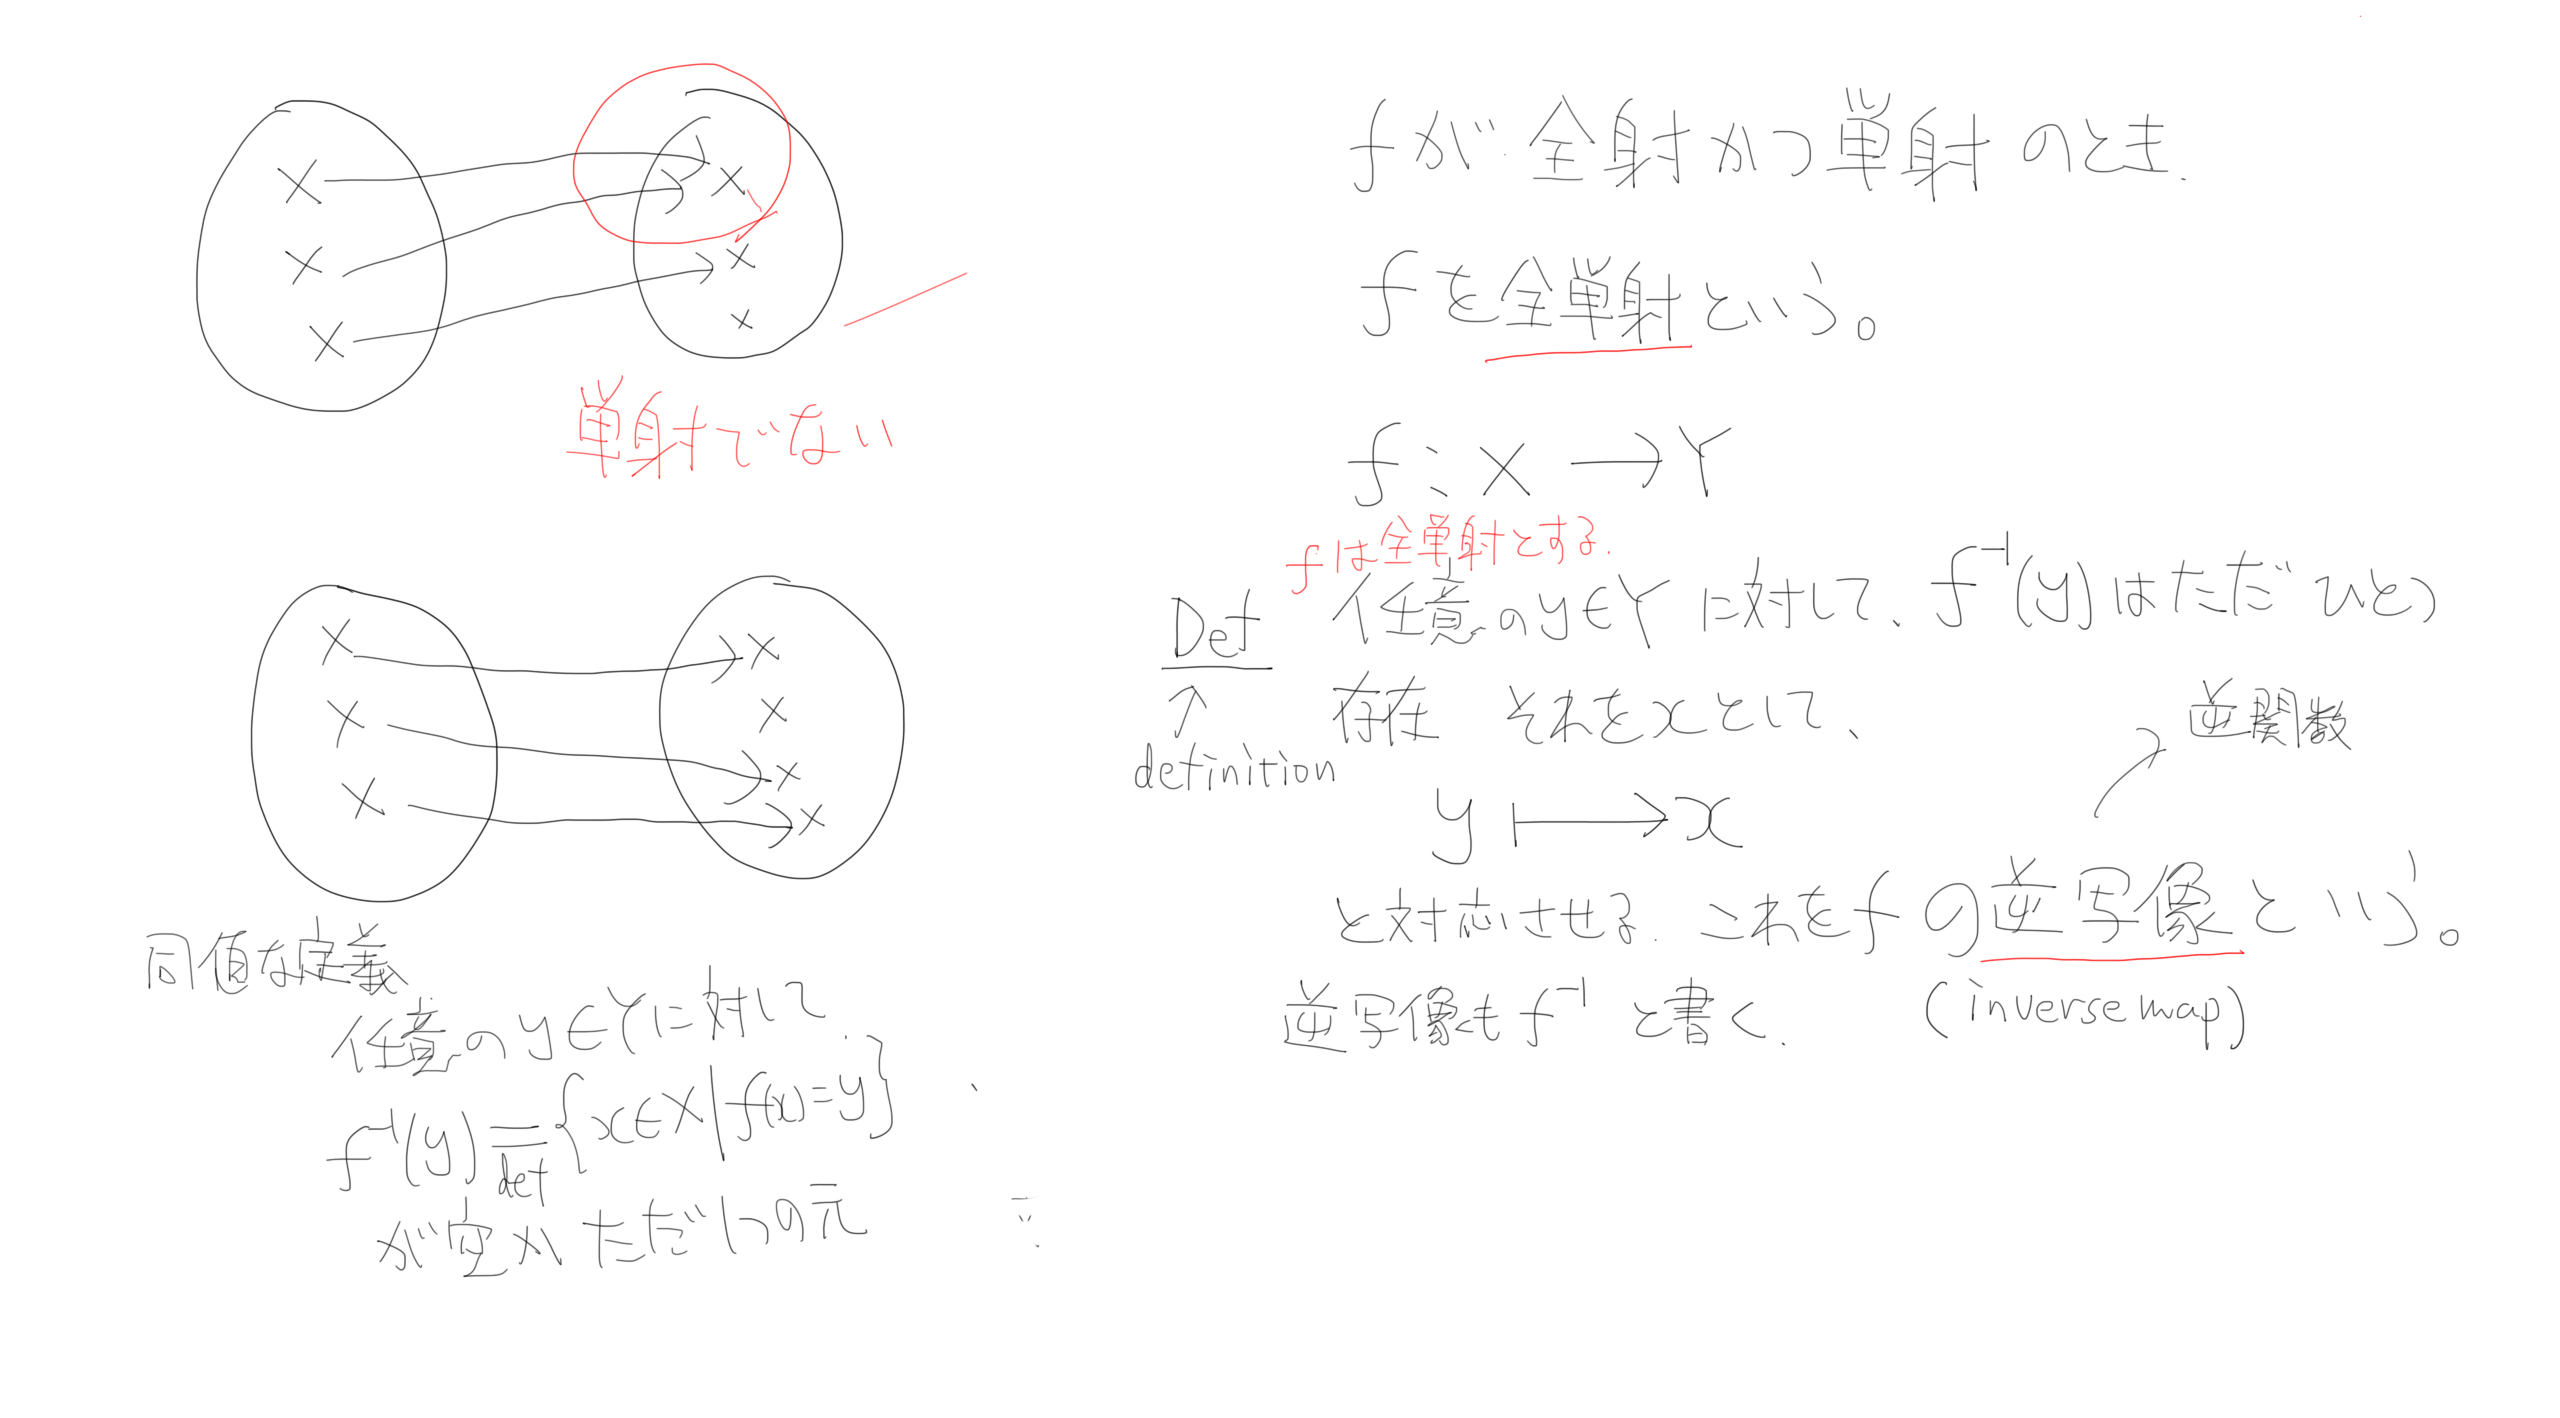 単射でない
同値な定義
任意のy∈Yに対して
f⁻¹(y) = {x∈X | f(x)=y}
def
が空か ただ1つの元
fが全射かつ単射のとき.
fを全単射という。
f : X → Y
fは全単射とする.
Def 任意のy∈Yに対して、f⁻¹(y)はただひとつ
↑ 存在 それをxとして、
definition
逆関数
y ↦ x
と対応させる. これをfの逆写像という。
逆写像もf⁻¹と書く.
(inverse map)